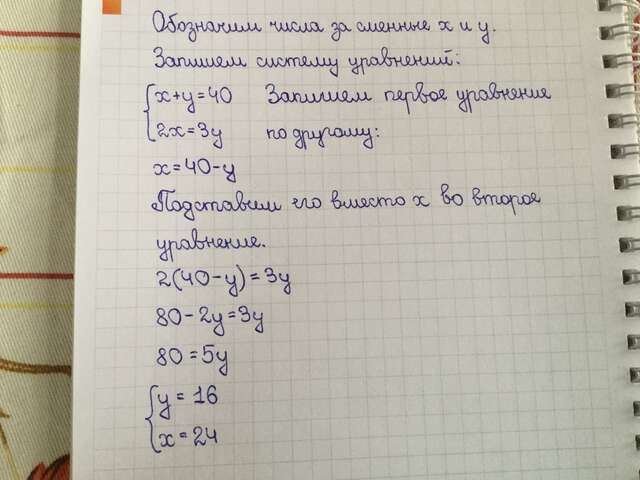 Обозначим числа за сменные x и y.
Запишем систему уравнений:
{x+y=40 Запишем первое уравнение
{2x=3y по другому:
x=40-y
Подставим его вместо x во второе
уравнение.
2(40-y)=3y
80-2y=3y
80=5y
{y=16
{x=24